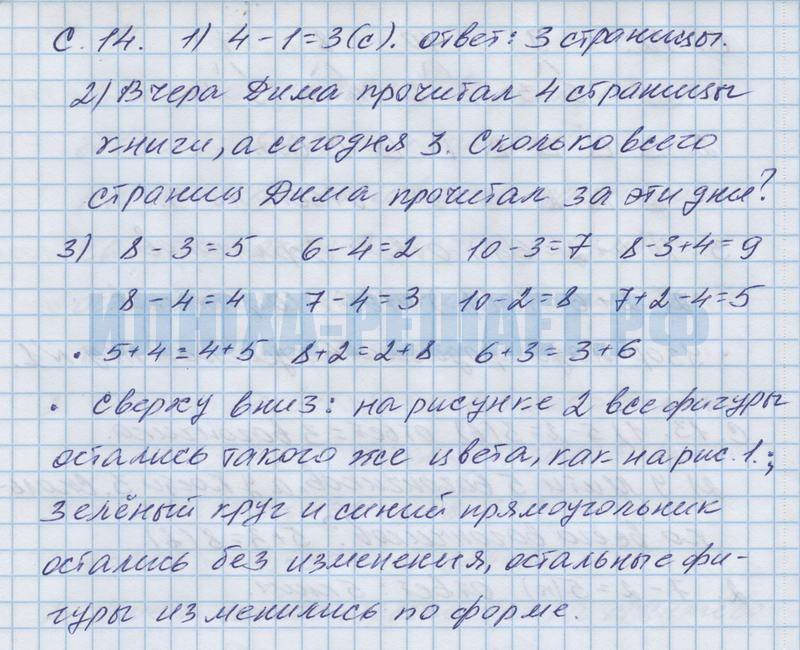 С. 14. 1) 4 - 1 = 3 (с). ответ: 3 страницы.
2) Вчера Дима прочитал 4 страницы
книги, а сегодня 3. Сколько всего
страниц Дима прочитал за эти дни?
3) 8 - 3 = 5 6 - 4 = 2 10 - 3 = 7 8 - 3 + 4 = 9
8 - 4 = 4 7 - 4 = 3 10 - 2 = 8 7 + 2 - 4 = 5
ИЛЮХА-РЕШАЕТ.РФ
• 5 + 4 = 4 + 5 8 + 2 = 2 + 8 6 + 3 = 3 + 6
• Сверху вниз: на рисунке 2 все фигуры
остались такого же цвета, как на рис. 1.;
зелёный круг и синий прямоугольник
остались без изменения, остальные фи-
гуры изменились по форме.